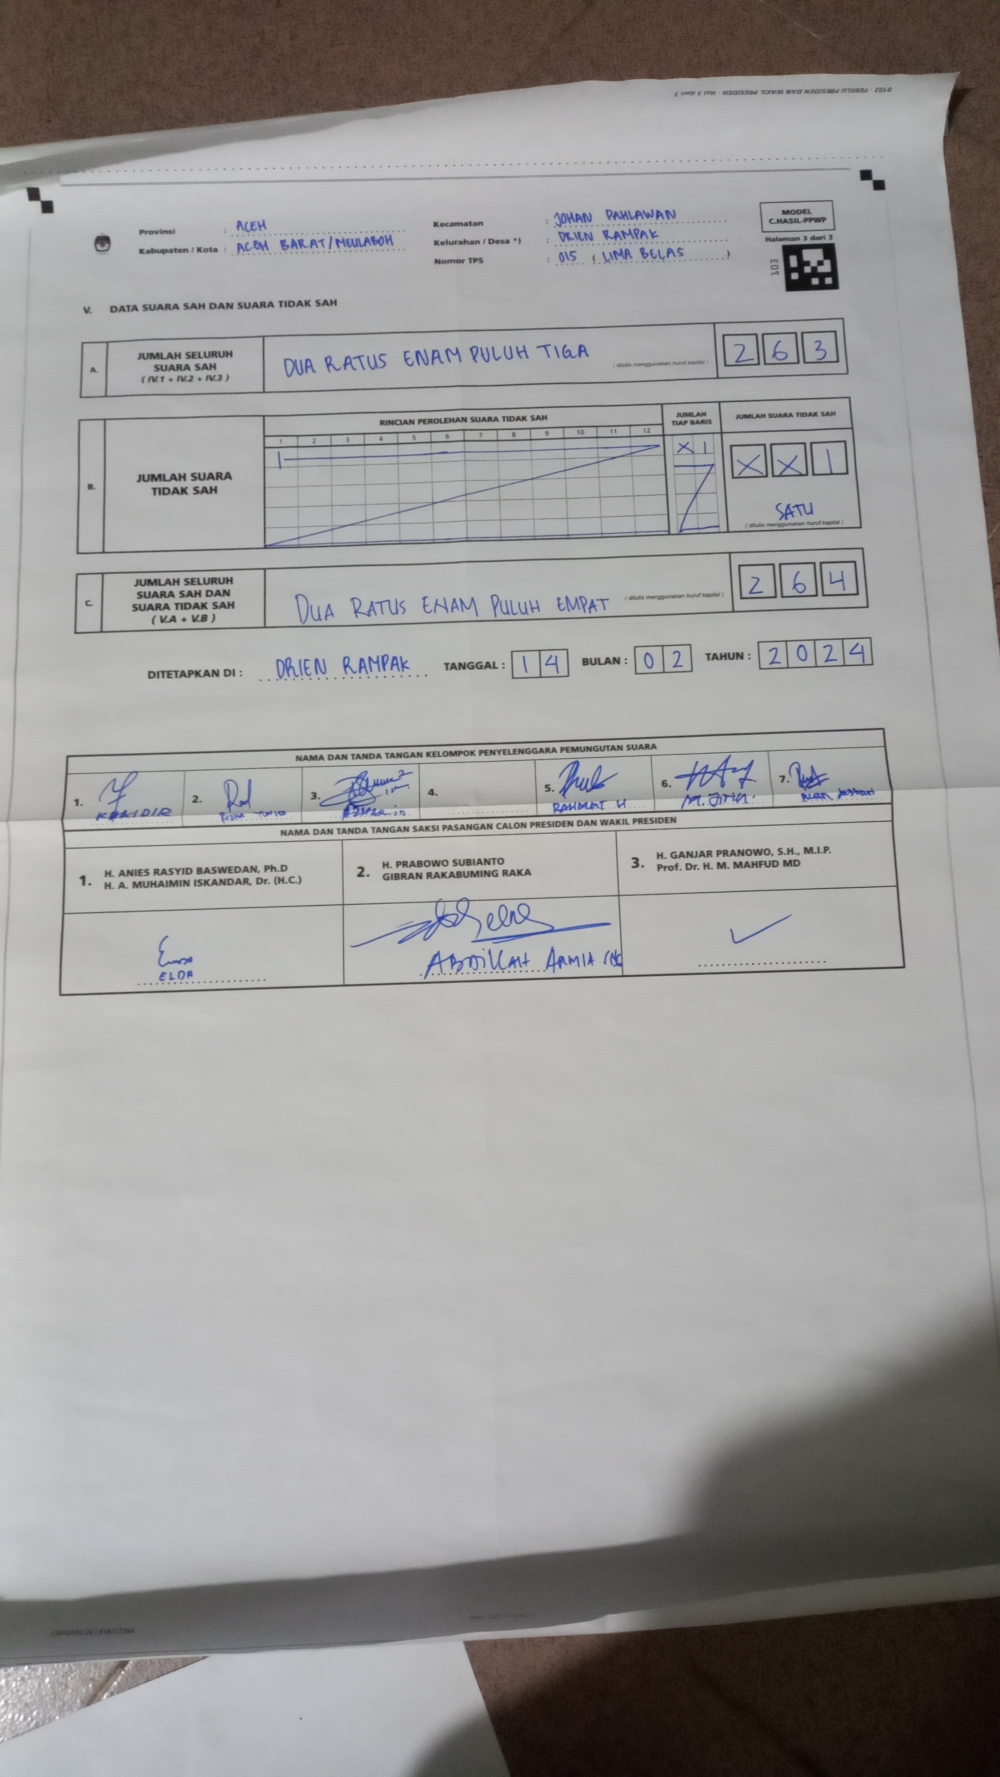 9102 - PEMILU PRESIDEN DAN WAKIL PRESIDEN - Hal 3 dari 3
Provinsi : ACEH
Kabupaten / Kota : ACEH BARAT/MEULABOH
Kecamatan : JOHAN PAHLAWAN
Kelurahan / Desa *) : DRIEN RAMPAK
Nomor TPS : 015 ( LIMA BELAS )
MODEL
C.HASIL-PPWP
Halaman 3 dari 3
103
V. DATA SUARA SAH DAN SUARA TIDAK SAH
A. JUMLAH SELURUH
SUARA SAH
( IV.1 + IV.2 + IV.3 )
DUA RATUS ENAM PULUH TIGA
( ditulis menggunakan huruf kapital )
2 6 3
B. JUMLAH SUARA
TIDAK SAH
RINCIAN PEROLEHAN SUARA TIDAK SAH
1 2 3 4 5 6 7 8 9 10 11 12
JUMLAH
TIAP BARIS
X 1
JUMLAH SUARA TIDAK SAH
X X 1
SATU
( ditulis menggunakan huruf kapital )
C. JUMLAH SELURUH
SUARA SAH DAN
SUARA TIDAK SAH
( V.A + V.B )
DUA RATUS ENAM PULUH EMPAT
( ditulis menggunakan huruf kapital )
2 6 4
DITETAPKAN DI : DRIEN RAMPAK TANGGAL : 1 4 BULAN : 0 2 TAHUN : 2 0 2 4
NAMA DAN TANDA TANGAN KELOMPOK PENYELENGGARA PEMUNGUTAN SUARA
1. KHAIDIR
2.
3.
4.
5. RAHMAT H
6.
7.
NAMA DAN TANDA TANGAN SAKSI PASANGAN CALON PRESIDEN DAN WAKIL PRESIDEN
1. H. ANIES RASYID BASWEDAN, Ph.D
H. A. MUHAIMIN ISKANDAR, Dr. (H.C.)
2. H. PRABOWO SUBIANTO
GIBRAN RAKABUMING RAKA
3. H. GANJAR PRANOWO, S.H., M.I.P.
Prof. Dr. H. M. MAHFUD MD
ELDA
ABDILLAH ARMIA